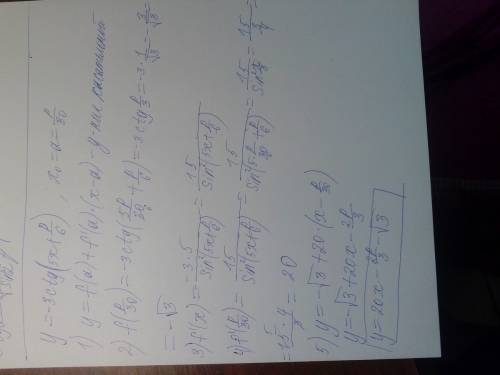 y = -3ctg(5x + π/6), x₀ = a = π/30
1) y = f(a) + f'(a)·(x-a) - у-ние касательной
2) f(π/30) = -3ctg(5π/30 + π/6) = -3ctg π/3 = -3·1/√3 = -3/√3 =
= -√3
3) f'(x) = -3·5/sin²(5x+π/6) = 15/sin²(5x+π/6)
4) f'(π/30) = 15/sin²(5·π/30 + π/6) = 15/sin² π/3 = 15/(3/4) =
= 15·4/3 = 20
5) y = -√3 + 20·(x - π/30)
y = -√3 + 20x - 2π/3
y = 20x - 2π/3 - √3